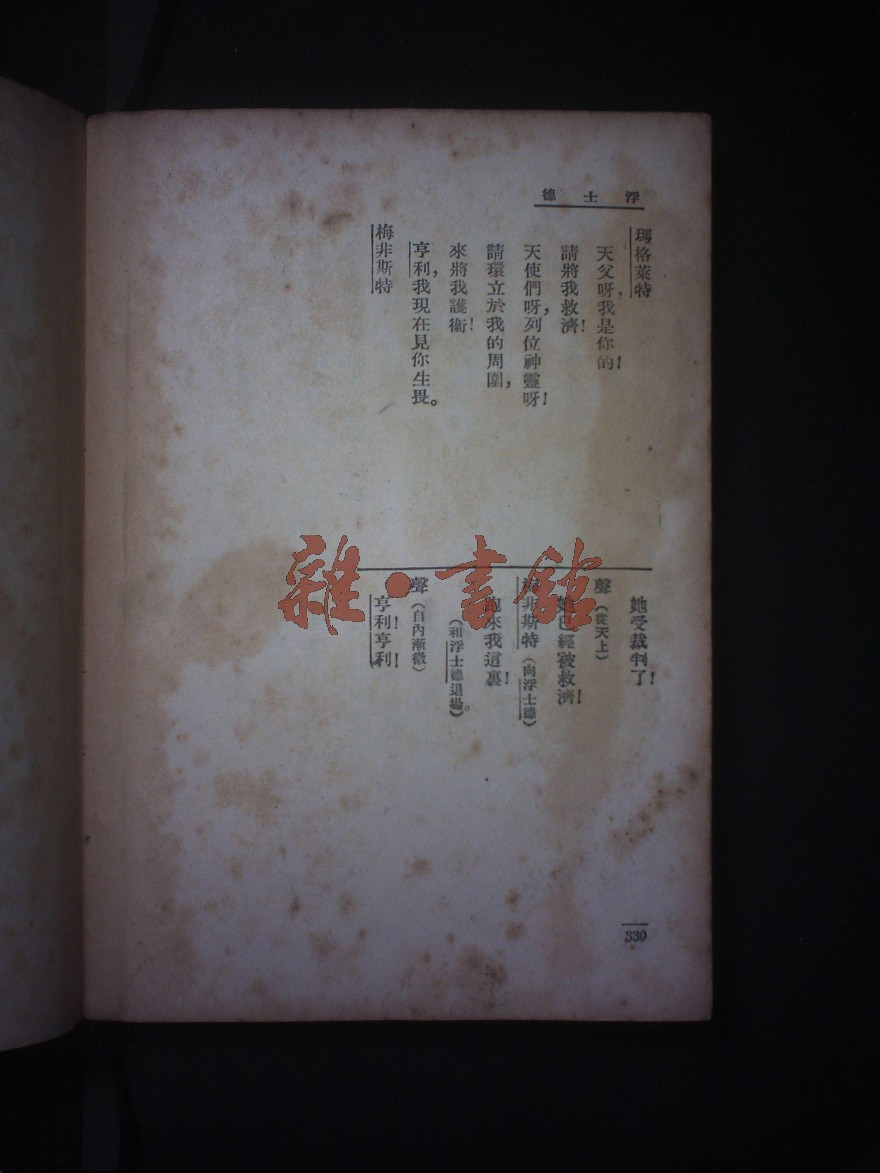 浮士德
瑪格萊特
天父呀，我是你的！
請將我救濟！
天使們呀，列位神靈呀！
請環立於我的周圍，
來將我護衞！
亨利，我現在見你生畏。
梅非斯特
她受裁判了！
聲（從天上）
她已經被救濟！
梅非斯特（向浮士德）
跑來我這裏！
（和浮士德退場。）
聲（自內漸微）
亨利！亨利！
330
雜·書館